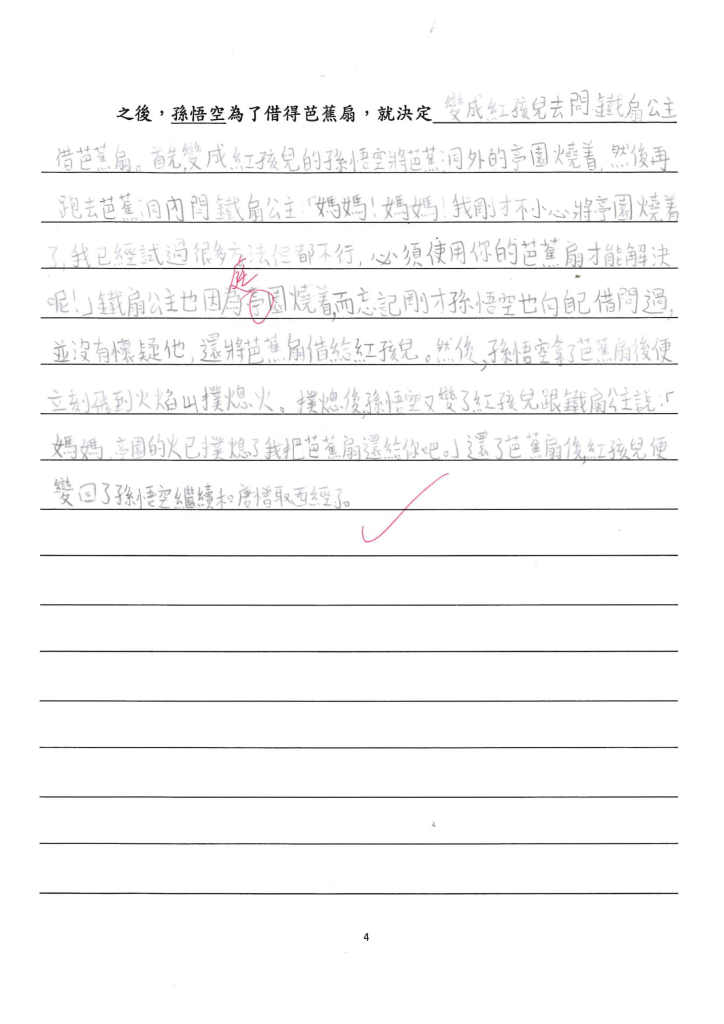 之後，孫悟空為了借得芭蕉扇，就決定變成紅孩兒去問鐵扇公主
借芭蕉扇。首先,變成紅孩兒的孫悟空將芭蕉洞外的亭園燒着,然後再
跑去芭蕉洞內問鐵扇公主:「媽媽!媽媽!我剛才不小心將亭園燒着
了,我已經試過很多方法但都不行,必須使用你的芭蕉扇才能解決
庭
呢!」鐵扇公主也因為亭園燒着,而忘記剛才孫悟空也向自己借問過,
並沒有懷疑他,還將芭蕉扇借給紅孩兒。然後,孫悟空拿了芭蕉扇後便
立刻飛到火焰山撲熄火。撲熄後,孫悟空又變了紅孩兒跟鐵扇公主說:「
媽媽,亭園的火已撲熄了我把芭蕉扇還給你吧。」還了芭蕉扇後,紅孩兒便
變回了孫悟空繼續和唐僧取西經了。
4